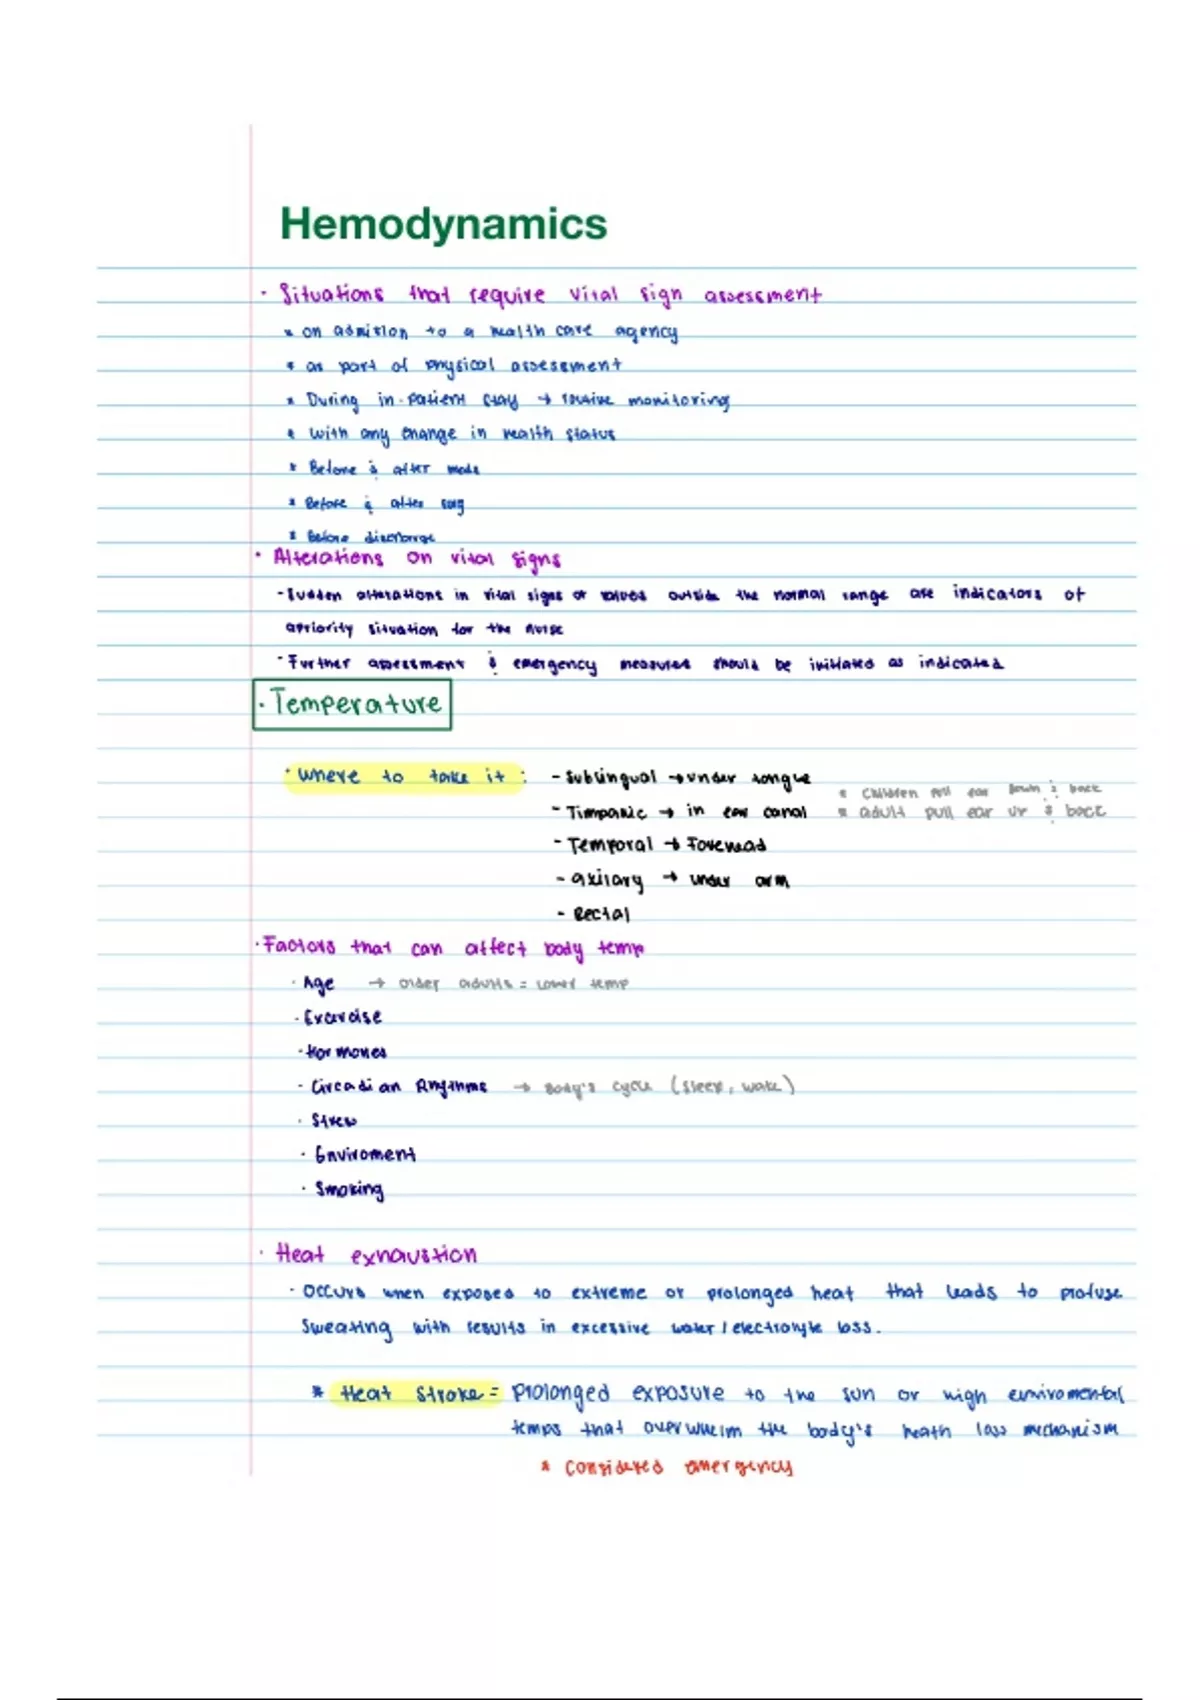 Hemodynamics
· Situations that require vital sign assessment
* on admision to a health care agency
* as part of physical assessment
* During in-patient stay → routine monitoring
* with any change in health status
* Before & after meds
* Before & after surg
* Before discharge
· Alterations on vital signs
- Sudden alterations in vital signs or values outside the normal range are indicators of
apriority situation for the nurse
- Further assessment & emergency measures should be initiated as indicated
· Temperature
· Where to take it : - Sublingual → under tongue
* Children pull ear down & back
- Timpanic → in ear canal * adult pull ear up & back
- Temporal → Forehead
- axilary → under arm
- Rectal
· Factors that can affect body temp
· Age → older adults = lower temp
· Exercise
· Hormones
· Circadian Rhythms → Body's cycle (sleep, wake)
· Stress
· Enviroment
· Smoking
· Heat exhaustion
· Occurs when exposed to extreme or prolonged heat that leads to profuse
Sweating with results in excessive water/electrolyte loss.
* Heat Stroke = Prolonged exposure to the sun or high enviromental
temps that overwhelm the body's heath loss mechanism
* Considered emergency